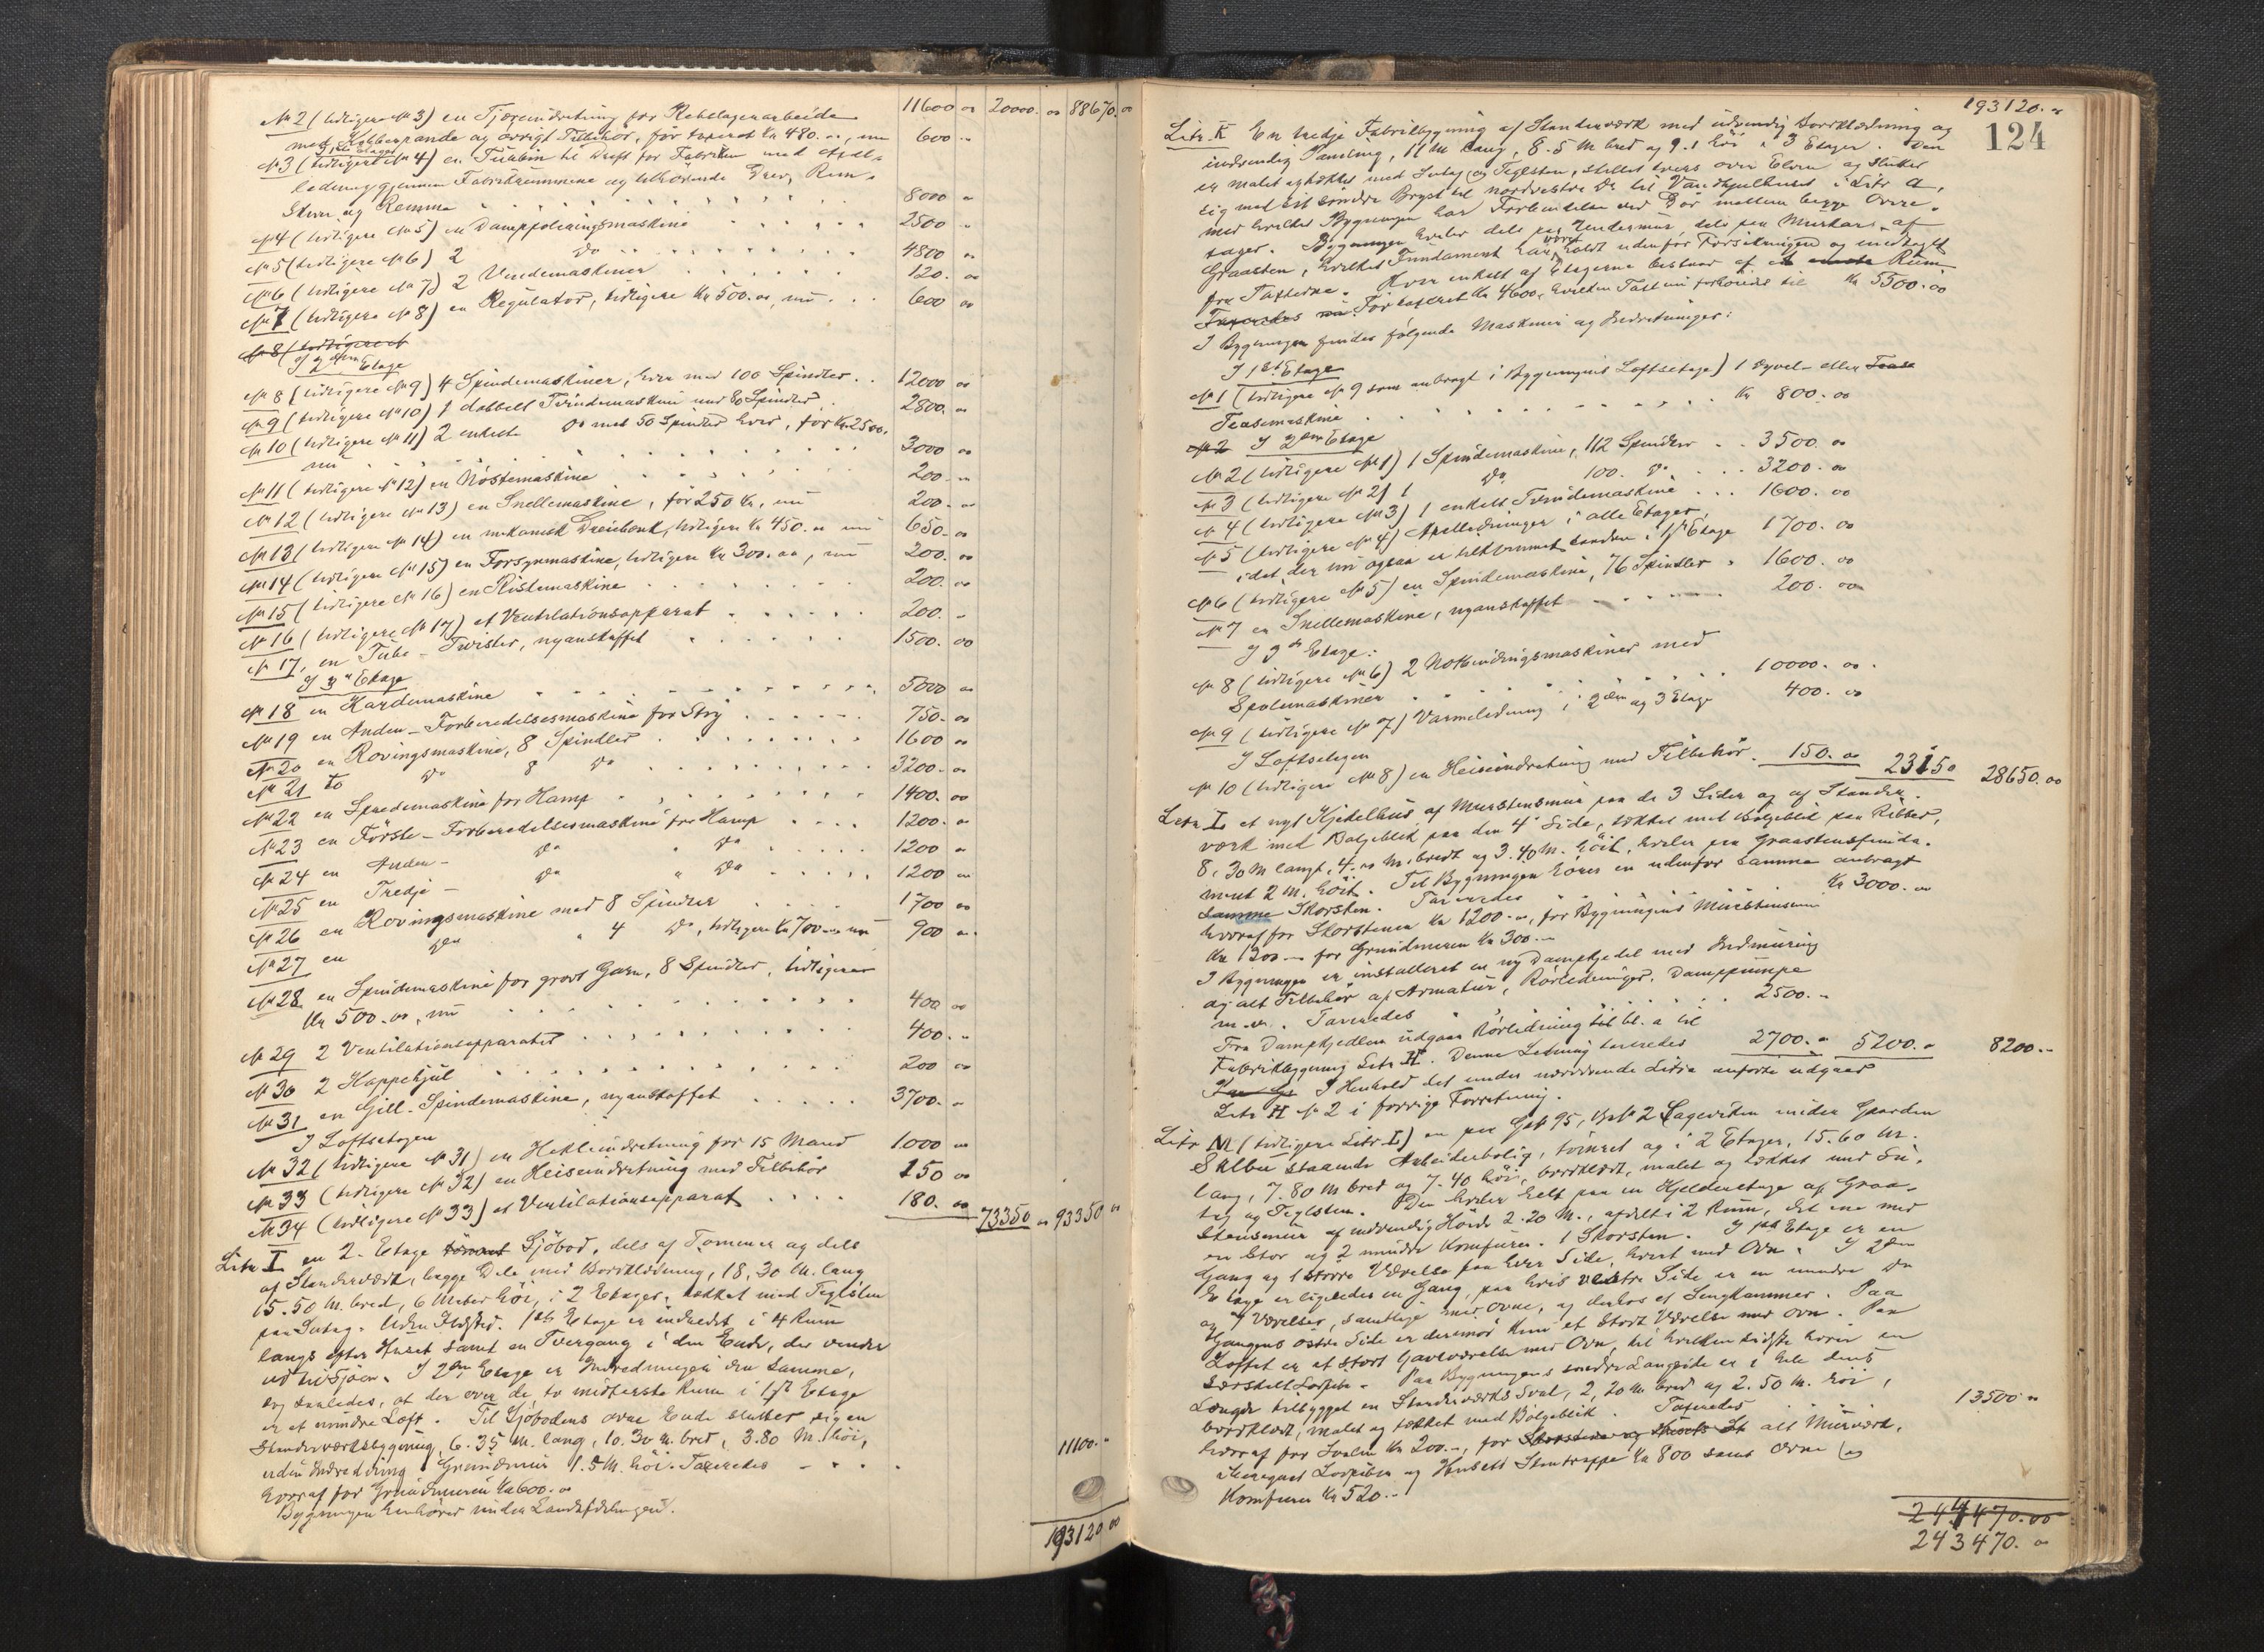 11600 00 20000. 00 88670. 00
No 2 (tidligere No 3) en Tjæreindretning for Rebslagerarbeide
med Kobberpande og øvrigt Tilbehør, før taxeret Kr 480.00, nu 600 "
I 1ste Etage
No 3 (tidligere No 4) en Turbin til Drift for Fabriken med Axel-
ledning gjennem Fabrikrummene og tilhørende Drev, Rem-
skiver og Remme 8000 "
No 4 (tidligere No 5) en Damppoleringsmaskine 2500 "
No 5 (tidligere No 6) 2 Do 4800 "
No 6 (tidligere No 7) 2 Vendemaskiner 120. 00
No 7 (tidligere No 8) en Regulator, tidligere Kr 500.00, nu 600 00
No 8 (tidligere
I 2den Etage
No 8 (tidligere No 9) 4 Spindemaskiner, hver med 100 Spindler 12000 00
No 9 (tidligere No 10) 1 dobbelt Tvindemaskine med 80 Spindler 2800. 00
No 10 (tidligere No 11) 2 enkelte Do med 50 Spindler hver, før Kr. 2500.
nu 3000 00
No 11 (tidligere No 12) en Nøstemaskine 200. "
No 12 (tidligere No 13) en Snellemaskine, før 250 Kr, nu 200. 00
No 13 (tidligere No 14) en mekanisk Dreiebænk, tidligere Kr 450.00 nu 650. 00
No 14 (tidligere No 15) en Forsynmaskine, tidligere Kr 300.00, nu 200. 00
No 15 (tidligere No 16) en Ristemaskine 200. 00
No 16 (tidligere No 17) et Ventilationsapparat 200. "
No 17, en Tube-Twister, nyanskaffet 1500. 00
I 3die Etage
No 18 en Kardemaskine 5000 00
No 19 en Anden-Forberedelsesmaskine for Stry 750. 00
No 20 en Rovingsmaskine, 8 Spindler 1600 00
No 21 to Do 8 Do 3200. 00
No 22 en Spredemaskine for Hamp 1400. 00
No 23 en Første-Forberedelsesmaskine for Hamp 1200. 00
No 24 en Anden- Do " Do 1200 "
No 25 en Tredje- Do " Do 1200 "
No 26 en Rovingsmaskine med 8 Spindler 1700 00
No 27 en Do " 4 Do, tidligere Kr 700.00 nu 900 00
No 28 en Spindemaskine for grovt Garn, 8 Spindler, tidligere
Kr 500.00, nu 400 00
No 29 2 Ventilationsapparater 400. "
No 30 2 Happehjul 200 00
No 31 en Gill-Spindemaskine, nyanskaffet 3700. "
I Loftsetagen
No 32 (tidligere No 31) en Hekleindretning for 15 Mand 1000 00
No 33 (tidligere No 32) en Heiseindretning med Tilbehør 150 00
No 34 (tidligere No 33) et Ventilationsapparat 180. 00 73350 00 93350 00
Litr I en 2. Etage tømret Sjøbod, dels af Tømmer og dels
af Standerværk, begge Dele med Bordklædning, 18,30 M. lang
15.50 M. bred, 6 Meter høi, i 2 Etager, tækket med Teglsten
paa Sutag. Uden Ildsted. 1ste Etage er indredet i 4 Rum
langs efter Huset samt en Tvergang i den Ende, der vender
ud til Sjøen. I 2den Etage er Indredningen den samme,
dog saaledes, at der over de to midterste Rum i 1ste Etage
er et mindre Loft. Til Sjøbodens øvre Ende slutter sig en
Standerværksbygning, 6.35 M. lang, 10.30 M. bred, 3.80 M. høi,
uden Indredning. Grundmur 1.5 M. høi. Taxeredes 11100. "
hvoraf for Grundmuren Kr 600.00
Bygningen henhører under Landafdelingen.
193120 00
193120. 00
124
Litr. K En tredje Fabrikbygning af Standerværk med udvendig Bordklædning og
indvendig Panling, 11 M lang, 8.5 M bred og 9.1 høi i 3 Etager. Den
er malet og tækket med Sutag og Teglsten, stillet tvers over Elven og slutter
sig med sit søndre Bryst til nordvestre Do til Vandhjulhuset i Litr A,
med hvilket Bygningen har Forbindelse ved Dør mellem begge Overe-
tager. Bygningen hviler dels paa Undermur, dels paa Murkar af
Graasten, hvilket Fundament har været holdt udenfor Forsikringen og medtaget
fra Taxterne. Hver enkelt af Etagerne bestaar af et Rum
Taxeredes nu Før taxeret Kr 4600, hvilken Taxt nu forhøiedes til Kr 5500.00
I Bygningen findes følgende Maskiner og Indretninger:
I 1ste Etage
No 1 (tidligere No 9 som anbragt i Bygningens Loftsetage) 1 Dyvel- eller Tease
Teasemaskine Kr 800.00
No 2 I 2den Etage
No 2 (tidligere No 1) 1 Spindemaskine, 112 Spindler 3500. 00
No 3 (tidligere No 2) 1 Do 100. Do 3200. 00
No 4 (tidligere No 3) 1 enkelt Tvindemaskine 1600. 00
No 5 (tidligere No 4) Axelledninger i alle Etager,
idet der nu ogsaa er tilkommet saadan i 1ste Etage 1700. 00
No 6 (tidligere No 5) en Spindemaskine, 76 Spindler 1600. 00
No 7 en Snellemaskine, nyanskaffet 200. 00
I 3die Etage:
No 8 (tidligere No 6) 2 Notbindingsmaskiner med
Spolemaskiner 10000. 00
No 9 (tidligere No 7) Varmeledning i 2den og 3 Etage 400. 00
I Loftsetagen
No 10 (tidligere No 8) en Heiseindretning med Tilbehør 150. 00 23150 28650.00
Litr L et nyt Kjedelhus af Murstensmur paa de 3 Sider og af Stander-
værk med Bølgeblik paa den 4de Side, tækket med Bølgeblik paa Ribber,
8,30 M langt, 4.00 M. bredt og 3.40 M. høit, hviler paa Graastensfunda-
ment 2 M. høit. Til Bygningen hører en udenfor samme anbragt
samme Skorsten. Taxeredes Kr 3000.00
hvoraf for Skorstenen Kr 1200.00, for Bygningens Murstensmur
Kr. 1200.– for Grundmuren Kr 300.–
I Bygningen er installeret en ny Dampkjedel med Indmuring
og alt Tilbehør af Armatur, Rørledninger, Damppumpe
m.v. Taxeredes 2500.–
Fra Dampkjedlen udgaar Rørledning til bl. a til
Fabrikbygning Litr H. Denne Ledning taxeredes 2700.– 5200.– 8200.–
I Henhold det under nærværende Litra anførte udgaar
Litr H No 2 i forrige Forretning.
Litr M (tidligere Litr L) en paa Gn 95, Br No 2 Sageviken under Gaarden
Salbu staaende Arbeiderbolig, tømret og i 2 Etager, 15.60 M.
lang, 7.80 M bred og 7.40 høi, bordklædt, malet og tækket med Su-
tag og Teglsten. Den hviler helt paa en Kjelderetage af Graa-
stensmur af indvendig Høide 2.20 M., afdelt i 2 Rum, det ene med
en stor og 2 mindre Komfurer. 1 Skorsten. I 1ste Etage er en
Gang og 1 større Værelse paa hver Side, hvert med Ovn. I 2den
Etage er ligeledes en Gang, paa hvis vestre Side er en mindre Do
og 2 Værelser, samtlige med Ovne, og derhos et Sengkammer. Paa
Gangens østre Side er derimod kun et stort Værelse med Ovn. Paa
Loftet er et stort Gavlværelse med Ovn, til hvilken sidste hører en
særskilt Lovpibe. Paa Bygningens søndre Langside er i hele dens
Længde tilbygget en Standerværks Sval, 2,20 M. bred og 2.50 M. høi,
bordklædt, malet og tækket med Bølgeblik. Taxeredes 13500 00
hvoraf for Svalen Kr 200.–, for Skorstene og Husets St alt Murværk,
iberegnet Lovpiben og Husets Stentrappe Kr 800 samt Ovne og
Komfurer Kr 520.–
244470.00
243470. 00